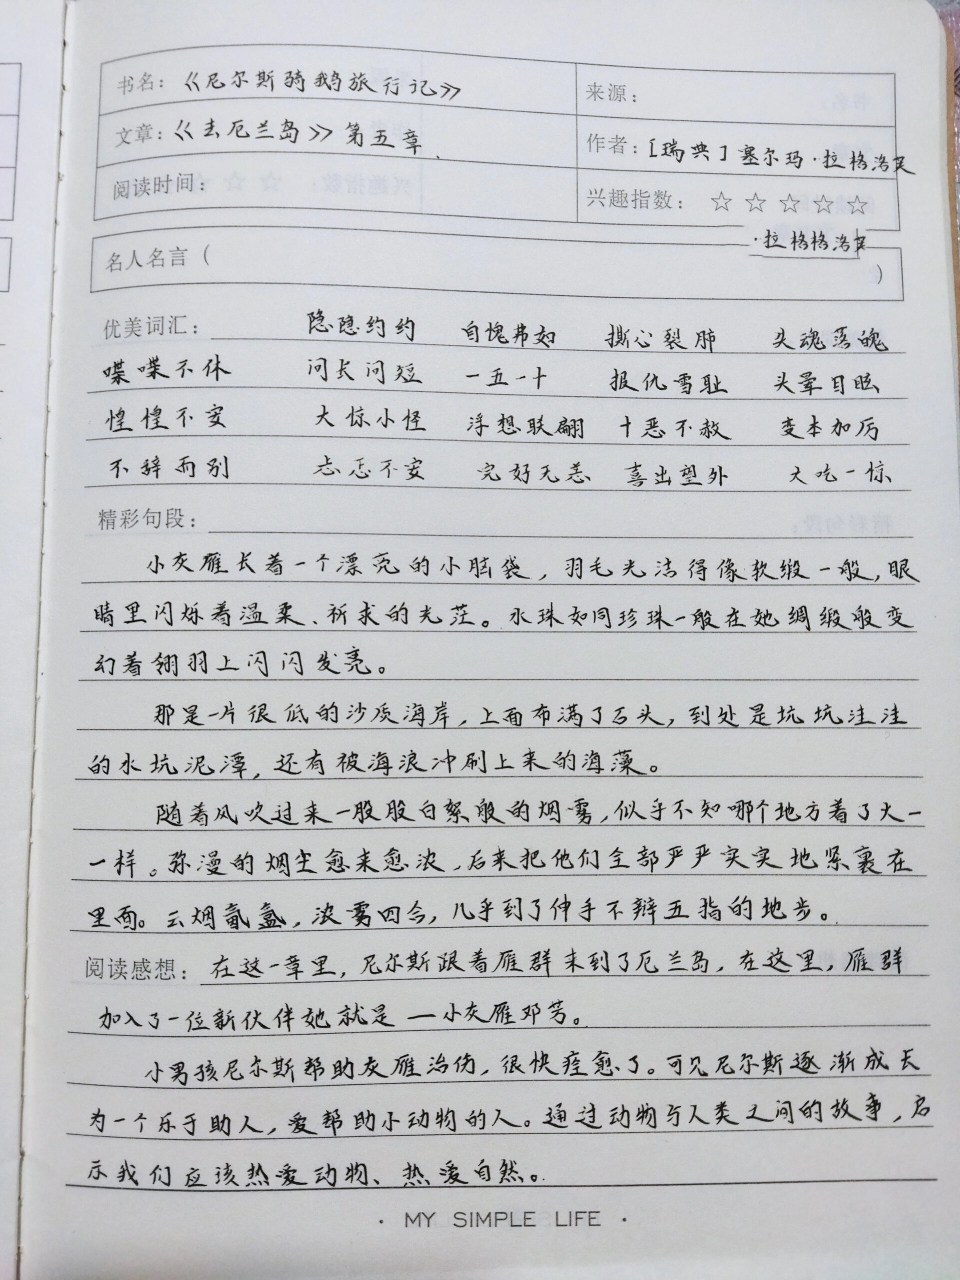 书名：《尼尔斯骑鹅旅行记》
来源：
文章：《去厄兰岛》第五章
作者：[瑞典]塞尔玛·拉格洛芙
阅读时间：
兴趣指数：☆☆☆☆☆
·拉格格洛芙
名人名言（ ）
优美词汇： 隐隐约约 自愧弗如 撕心裂肺 失魂落魄
喋喋不休 问长问短 一五一十 报仇雪耻 头晕目眩
惶惶不安 大惊小怪 浮想联翩 十恶不赦 变本加厉
不辞而别 忐忑不安 完好无恙 喜出望外 大吃一惊
精彩句段：
小灰雁长着一个漂亮的小脑袋，羽毛光洁得像软缎一般，眼
睛里闪烁着温柔、祈求的光茫。水珠如同珍珠一般在她绸缎般变
幻着翎羽上闪闪发亮。
那是一片很低的沙质海岸，上面布满了石头，到处是坑坑洼洼
的水坑泥潭，还有被海浪冲刷上来的海藻。
随着风吹过来一股股白絮般的烟雾，似乎不知哪个地方着了火一
一样。弥漫的烟尘愈来愈浓，后来把他们全部严严实实地紧裹在
里面。云烟氤氲，浓雾四合，几乎到了伸手不辨五指的地步。
阅读感想：在这一章里，尼尔斯跟着雁群来到了厄兰岛，在这里，雁群
加入了一位新伙伴她就是一小灰雁邓芬。
小男孩尼尔斯帮助灰雁治伤，很快痊愈了。可见尼尔斯逐渐成长
为一个乐于助人，爱帮助小动物的人。通过动物与人类之间的故事，启
示我们应该热爱动物、热爱自然。
· MY SIMPLE LIFE ·